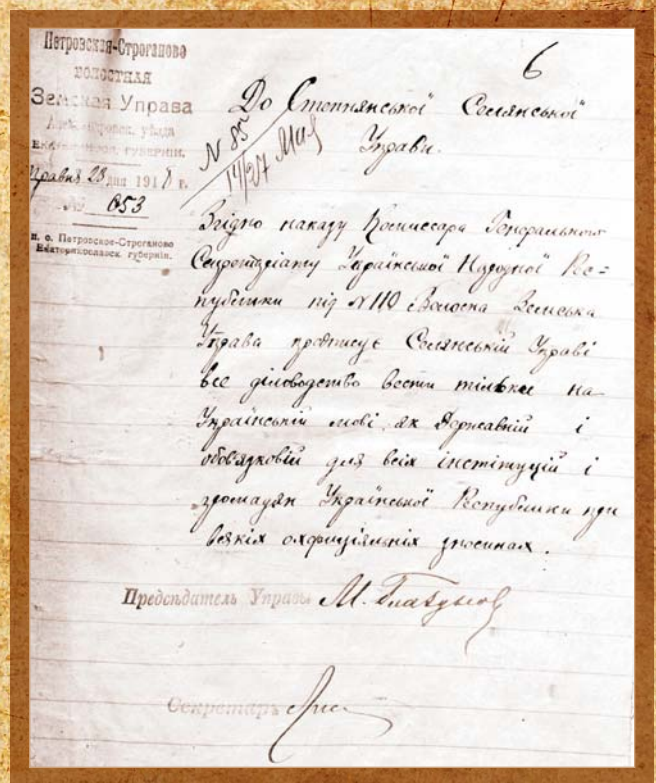 Петровская-Строганово
волостная
Земская Управа
уѣзда
губерніи.
28 дня 1918 г.
№ 653
п. о. Петровское-Строганово
Екатеринославск. губерніи.
6
До Степнянської Селянської
Управи.
N 85
14/27 Мая
Згідно наказу Комиссара Генерального
Секретаріату Української Народної Рес=
публики під N 110 Волосна Земська
Управа предписує Селянській Управі
все діловодство вести тілька на
Українській мові як Державній і
обовязковій для всіх інстітуцій і
громадян Української Республики при
всяких оффиціяльніх зносинах.
Предсѣдатель Управы М.
Секретарь